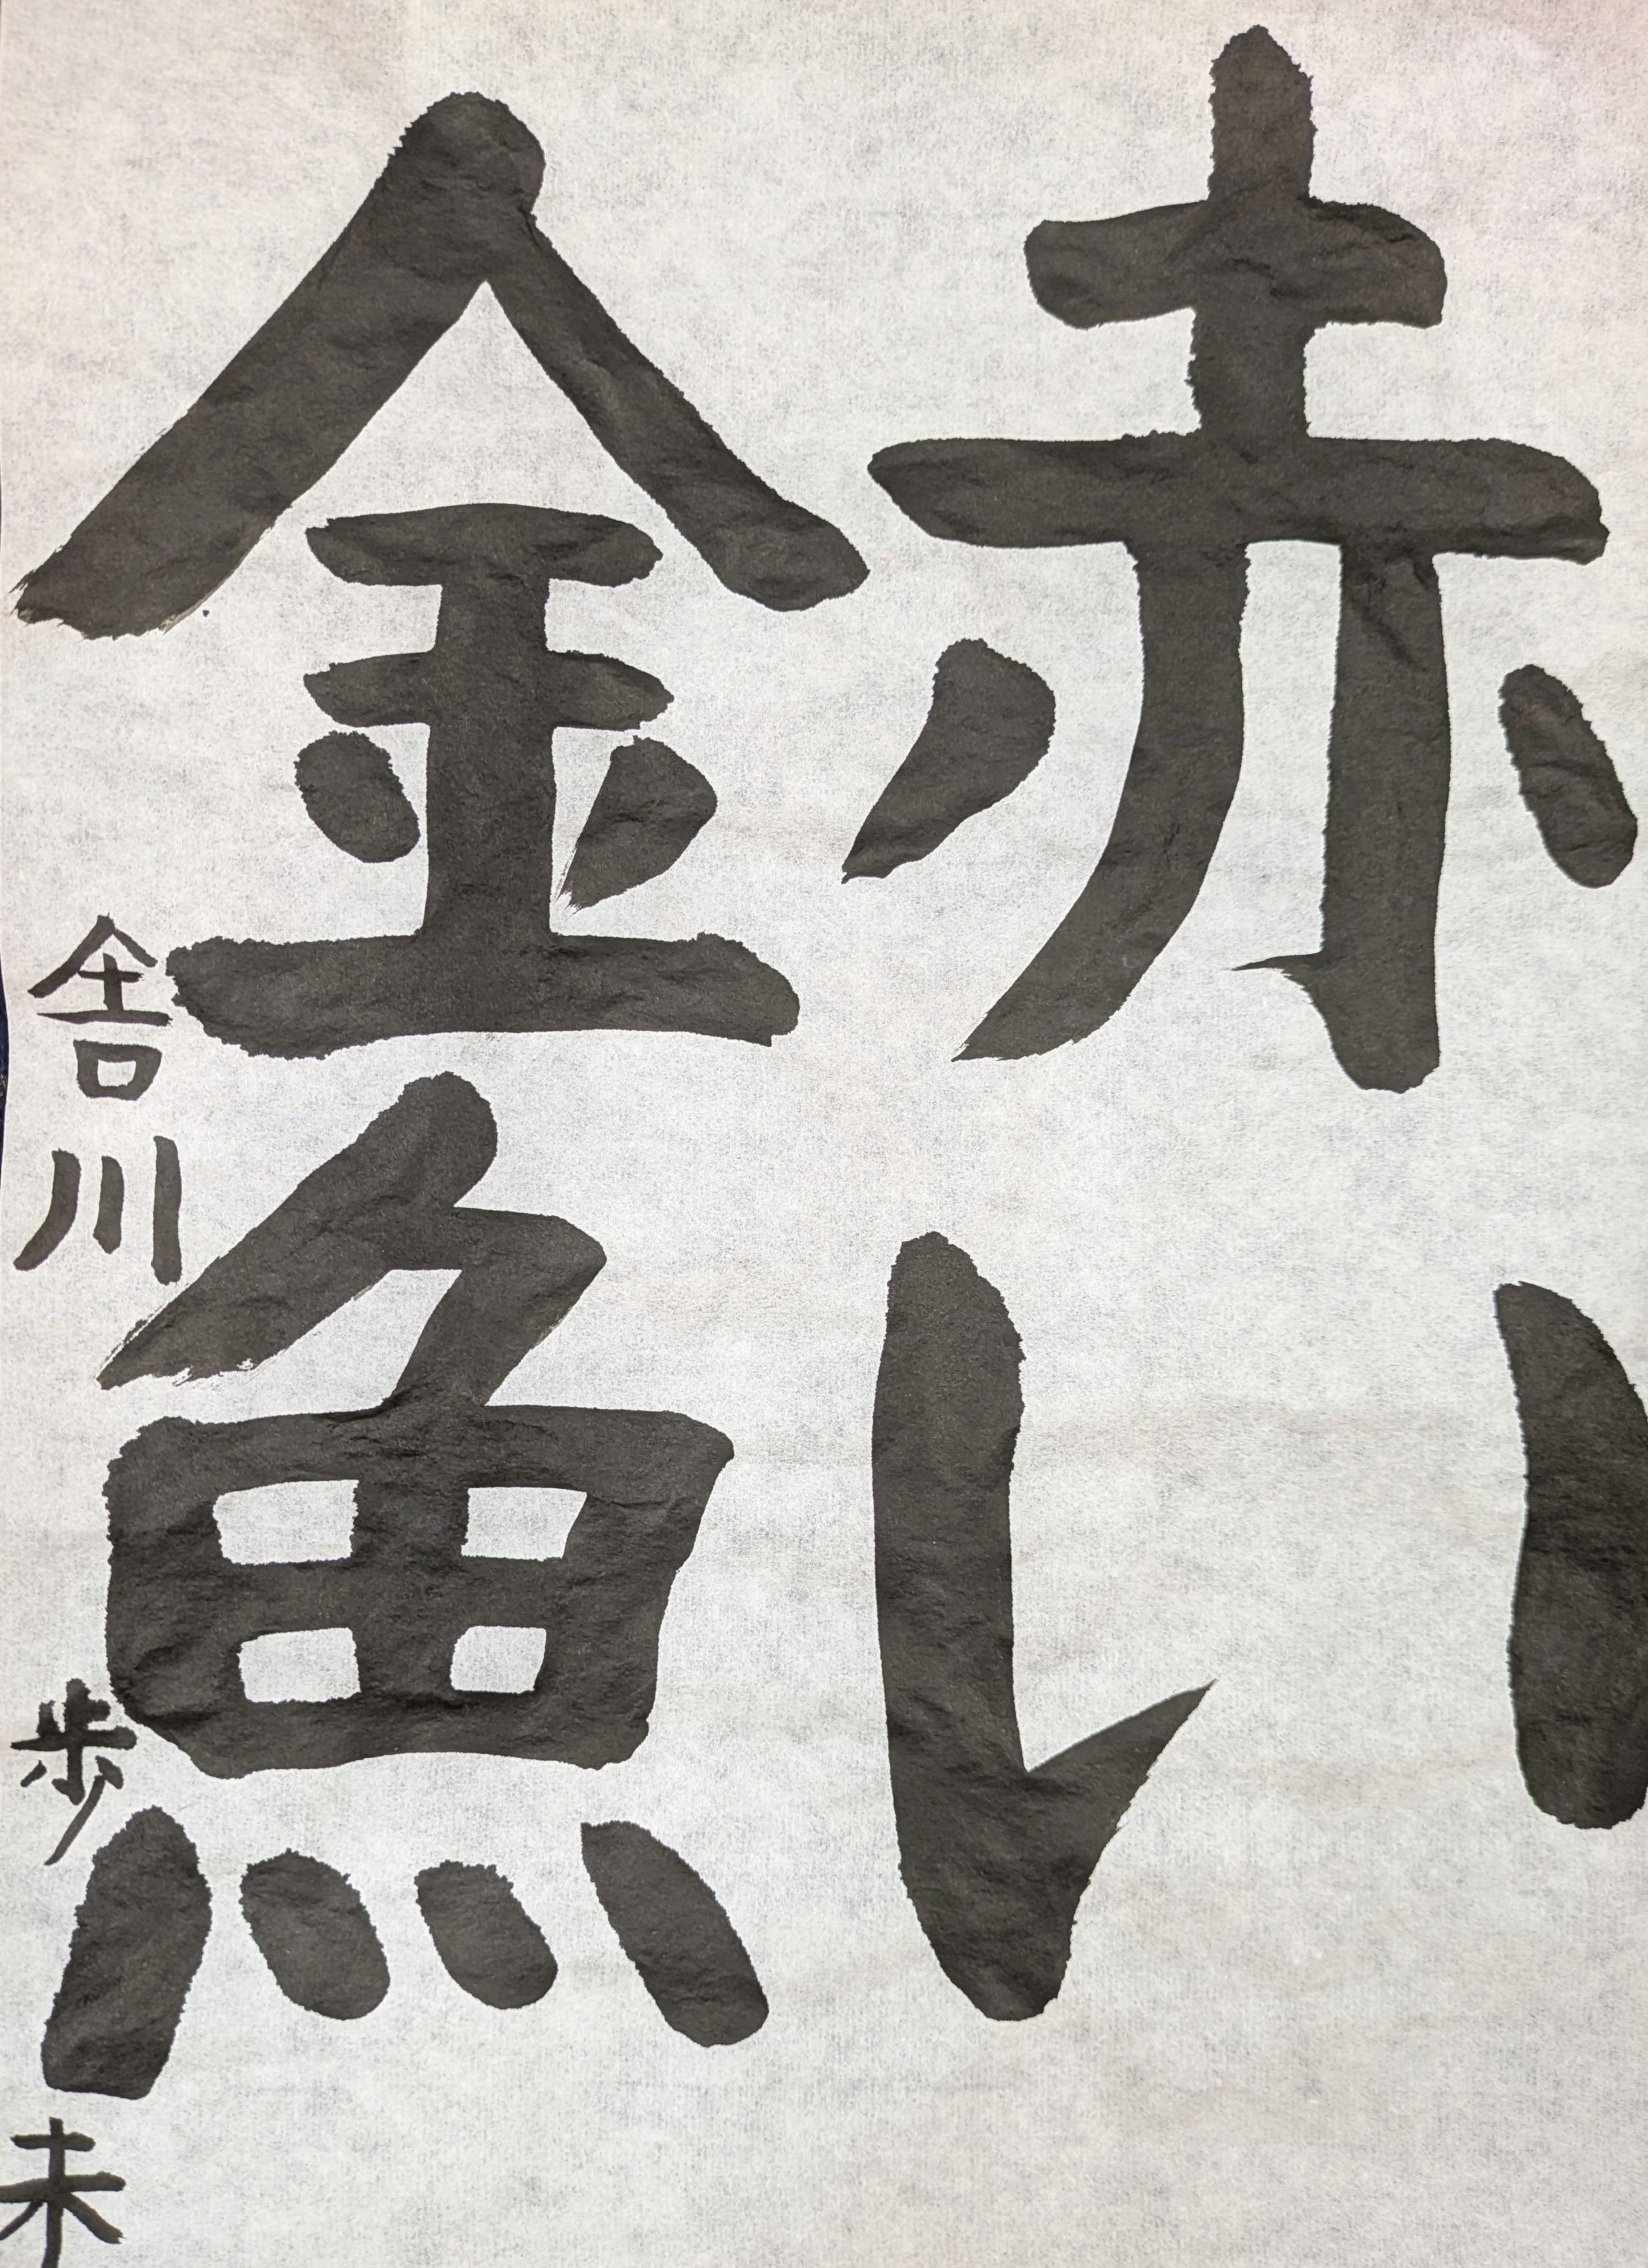 赤い
金魚
舎川歩未